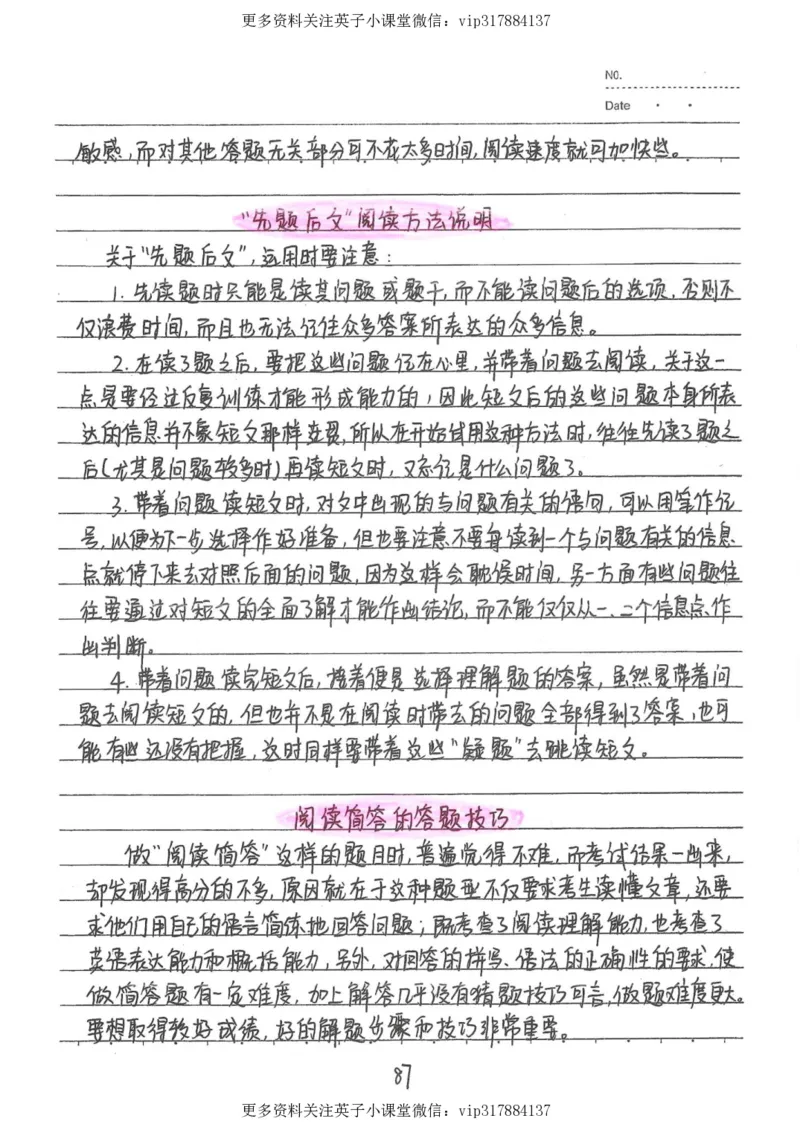 更多资料关注英子小课堂微信：vip317884137
No.
Date
敏感，而对其他答题无关部分可不花太多时间，阅读速度就可加快些。
“先题后文”阅读方法说明
关于“先题后文”，运用时要注意：
1. 先读题时只能是读其问题或题干，而不能读问题后的选项，否则不
仅浪费时间，而且也无法记住众多答案所表达的众多信息。
2. 在读了题之后，要把这些问题记在心里，并带着问题去阅读，关于这一
点是要经过反复训练才能形成能力的，因此短文后的这些问题本身所表
达的信息并不象短文那样连贯，所以在开始试用这种方法时，往往先读了题之
后（尤其是问题较多时）再读短文时，又忘记是什么问题了。
3. 带着问题读短文时，对文中出现的与问题有关的语句，可以用笔作记
号，以便为下一步选择作好准备，但也要注意不要每读到一个与问题有关的信息
点就停下来去对照后面的问题，因为这样会耽误时间，另一方面有些问题往
往要通过对短文的全面了解才能作出结论，而不能仅仅从一、二个信息点作
出判断。
4. 带着问题读完短文后，接着便是选择理解题的答案，虽然是带着问
题去阅读短文的，但也并不是在阅读时带去的问题全部得到了答案，也可
能有些还没有把握，这时同样要带着这些“疑题”去跳读短文。
阅读简答的答题技巧
做“阅读简答”这样的题目时，普遍觉得不难，而考试结果一出来，
却发现得高分的不多，原因就在于这种题型不仅要求考生读懂文章，还要
求他们用自己的语言简练地回答问题；既考查了阅读理解能力，也考查了
英语表达能力和概括能力，另外，对回答的拼写、语法的正确性的要求，使
做简答题有一定难度，加上解答几乎没有猜题技巧可言，做题难度更大。
要想取得较好成绩，好的解题步骤和技巧非常重要。
87
更多资料关注英子小课堂微信：vip317884137